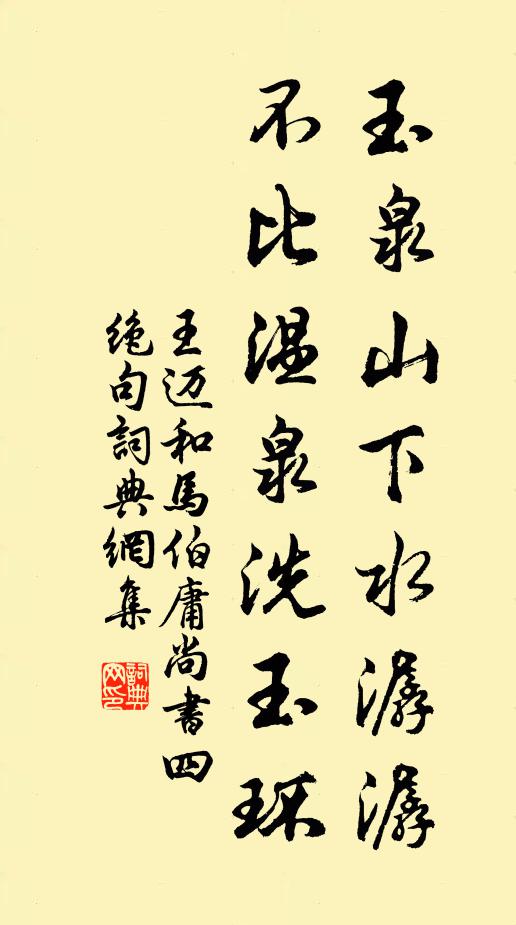 玉泉山下水潺潺
不比温泉洗玉环
王迈和馬伯庸尚書四
絶句詞典網集
詞典
网印